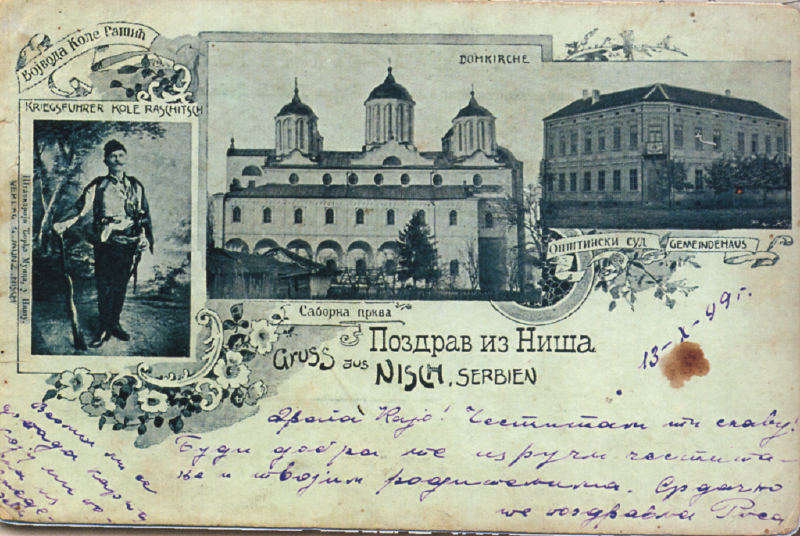 Војвода Коле Рашић
KRIEGSFÜHRER KOLE RASCHITSCH
DOMKIRCHE
Саборна црква
Општински суд
GEMEINDEHAUS
Поздрав из Ниша
Gruss aus NISCH, SERBIEN
13-X-99 г.
Драга Кајо! Честитам ти славу!
Буди добра те изручи честита-
ње и твојим родитељима. Срдачно
те поздравља Роса